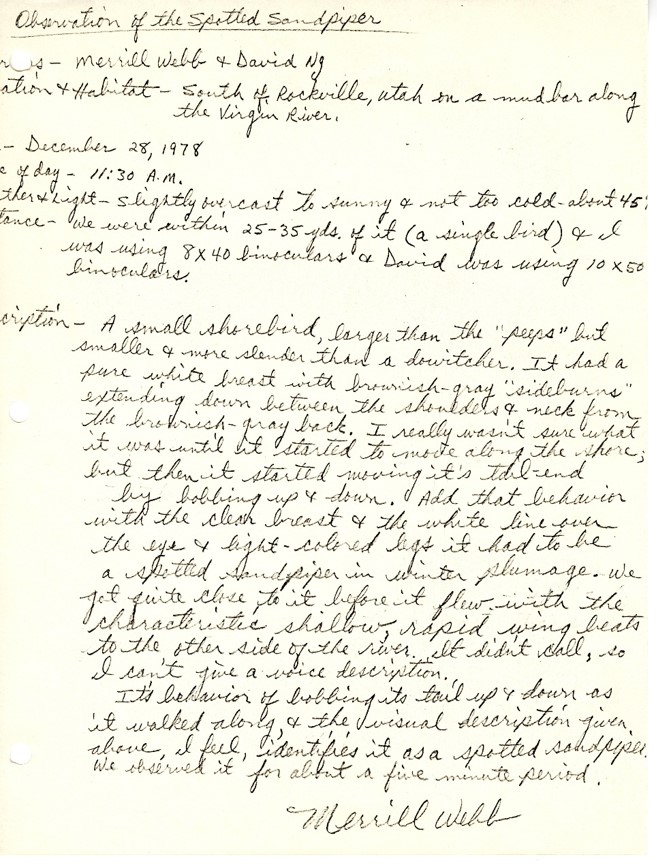 Observation of the Spotted Sandpiper
- Merrill Webb & David Ng
ation & Habitat - South of Rockville, Utah on a mudbar along
the Virgin River.
- December 28, 1978
e of day - 11:30 A.M.
ther & Light - Slightly overcast to sunny & not too cold - about 45°
tance - We were within 25-35 yds. of it (a single bird) & I
was using 8X40 binoculars & David was using 10 X 50
binoculars.
cription - A small shorebird, larger than the "peeps" but
smaller & more slender than a dowitcher. It had a
pure white breast with brownish-gray "sideburns"
extending down between the shoulders & neck from
the brownish-gray back. I really wasn't sure what
it was until it started to move along the shore;
but then it started moving it's tail-end
by bobbing up & down. Add that behavior
with the clear breast & the white line over
the eye & light-colored legs it had to be
a spotted sandpiper in winter plumage. We
got quite close to it before it flew with the
characteristic shallow, rapid wing beats
to the other side of the river. It didn't call, so
I can't give a voice description.
It's behavior of bobbing its tail up & down as
it walked along, & the visual description given
above, I feel, identifies it as a spotted sandpiper.
We observed it for about a five minute period.
Merrill Webb